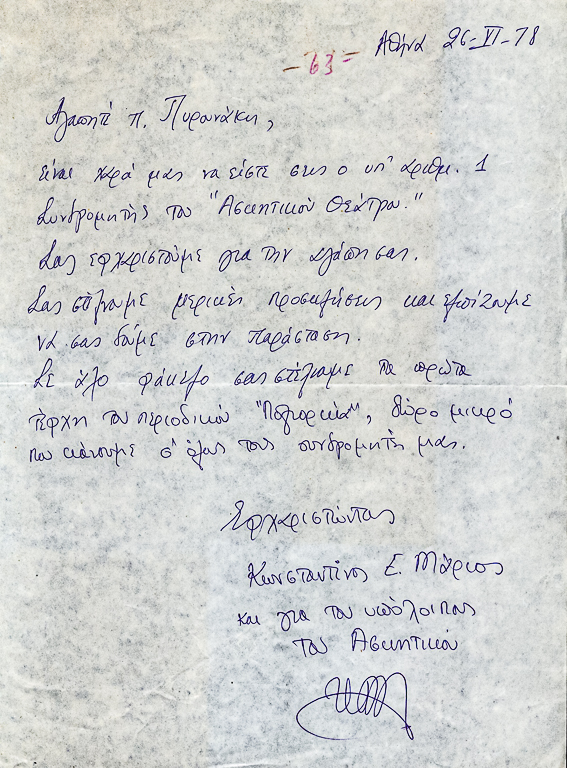 Αθήνα 26-VI-78
-63=
Αγαπητέ π. Πυρουνάκη,
είναι χαρά μας να είστε σεις ο υπ' αριθμ. 1
Συνδρομητής του "Ασκητικού Θεάτρου."
Σας εφχαριστούμε για την αγάπη σας.
Σας στέλνουμε μερικές προσκλήσεις και ελπίζουμε
να σας δούμε στην παράσταση.
Σε άλο φάκελο σας στέλνουμε τα πρώτα
τέφχη του περιοδικού "Πολιορκία", δώρο μικρό
που κάνουμε σ' όλους τους συνδρομητές μας.
Εφχαριστώντας
Κωνσταντίνος Ε. Μάριος
και για τους υπόλοιπους
του Ασκητικού